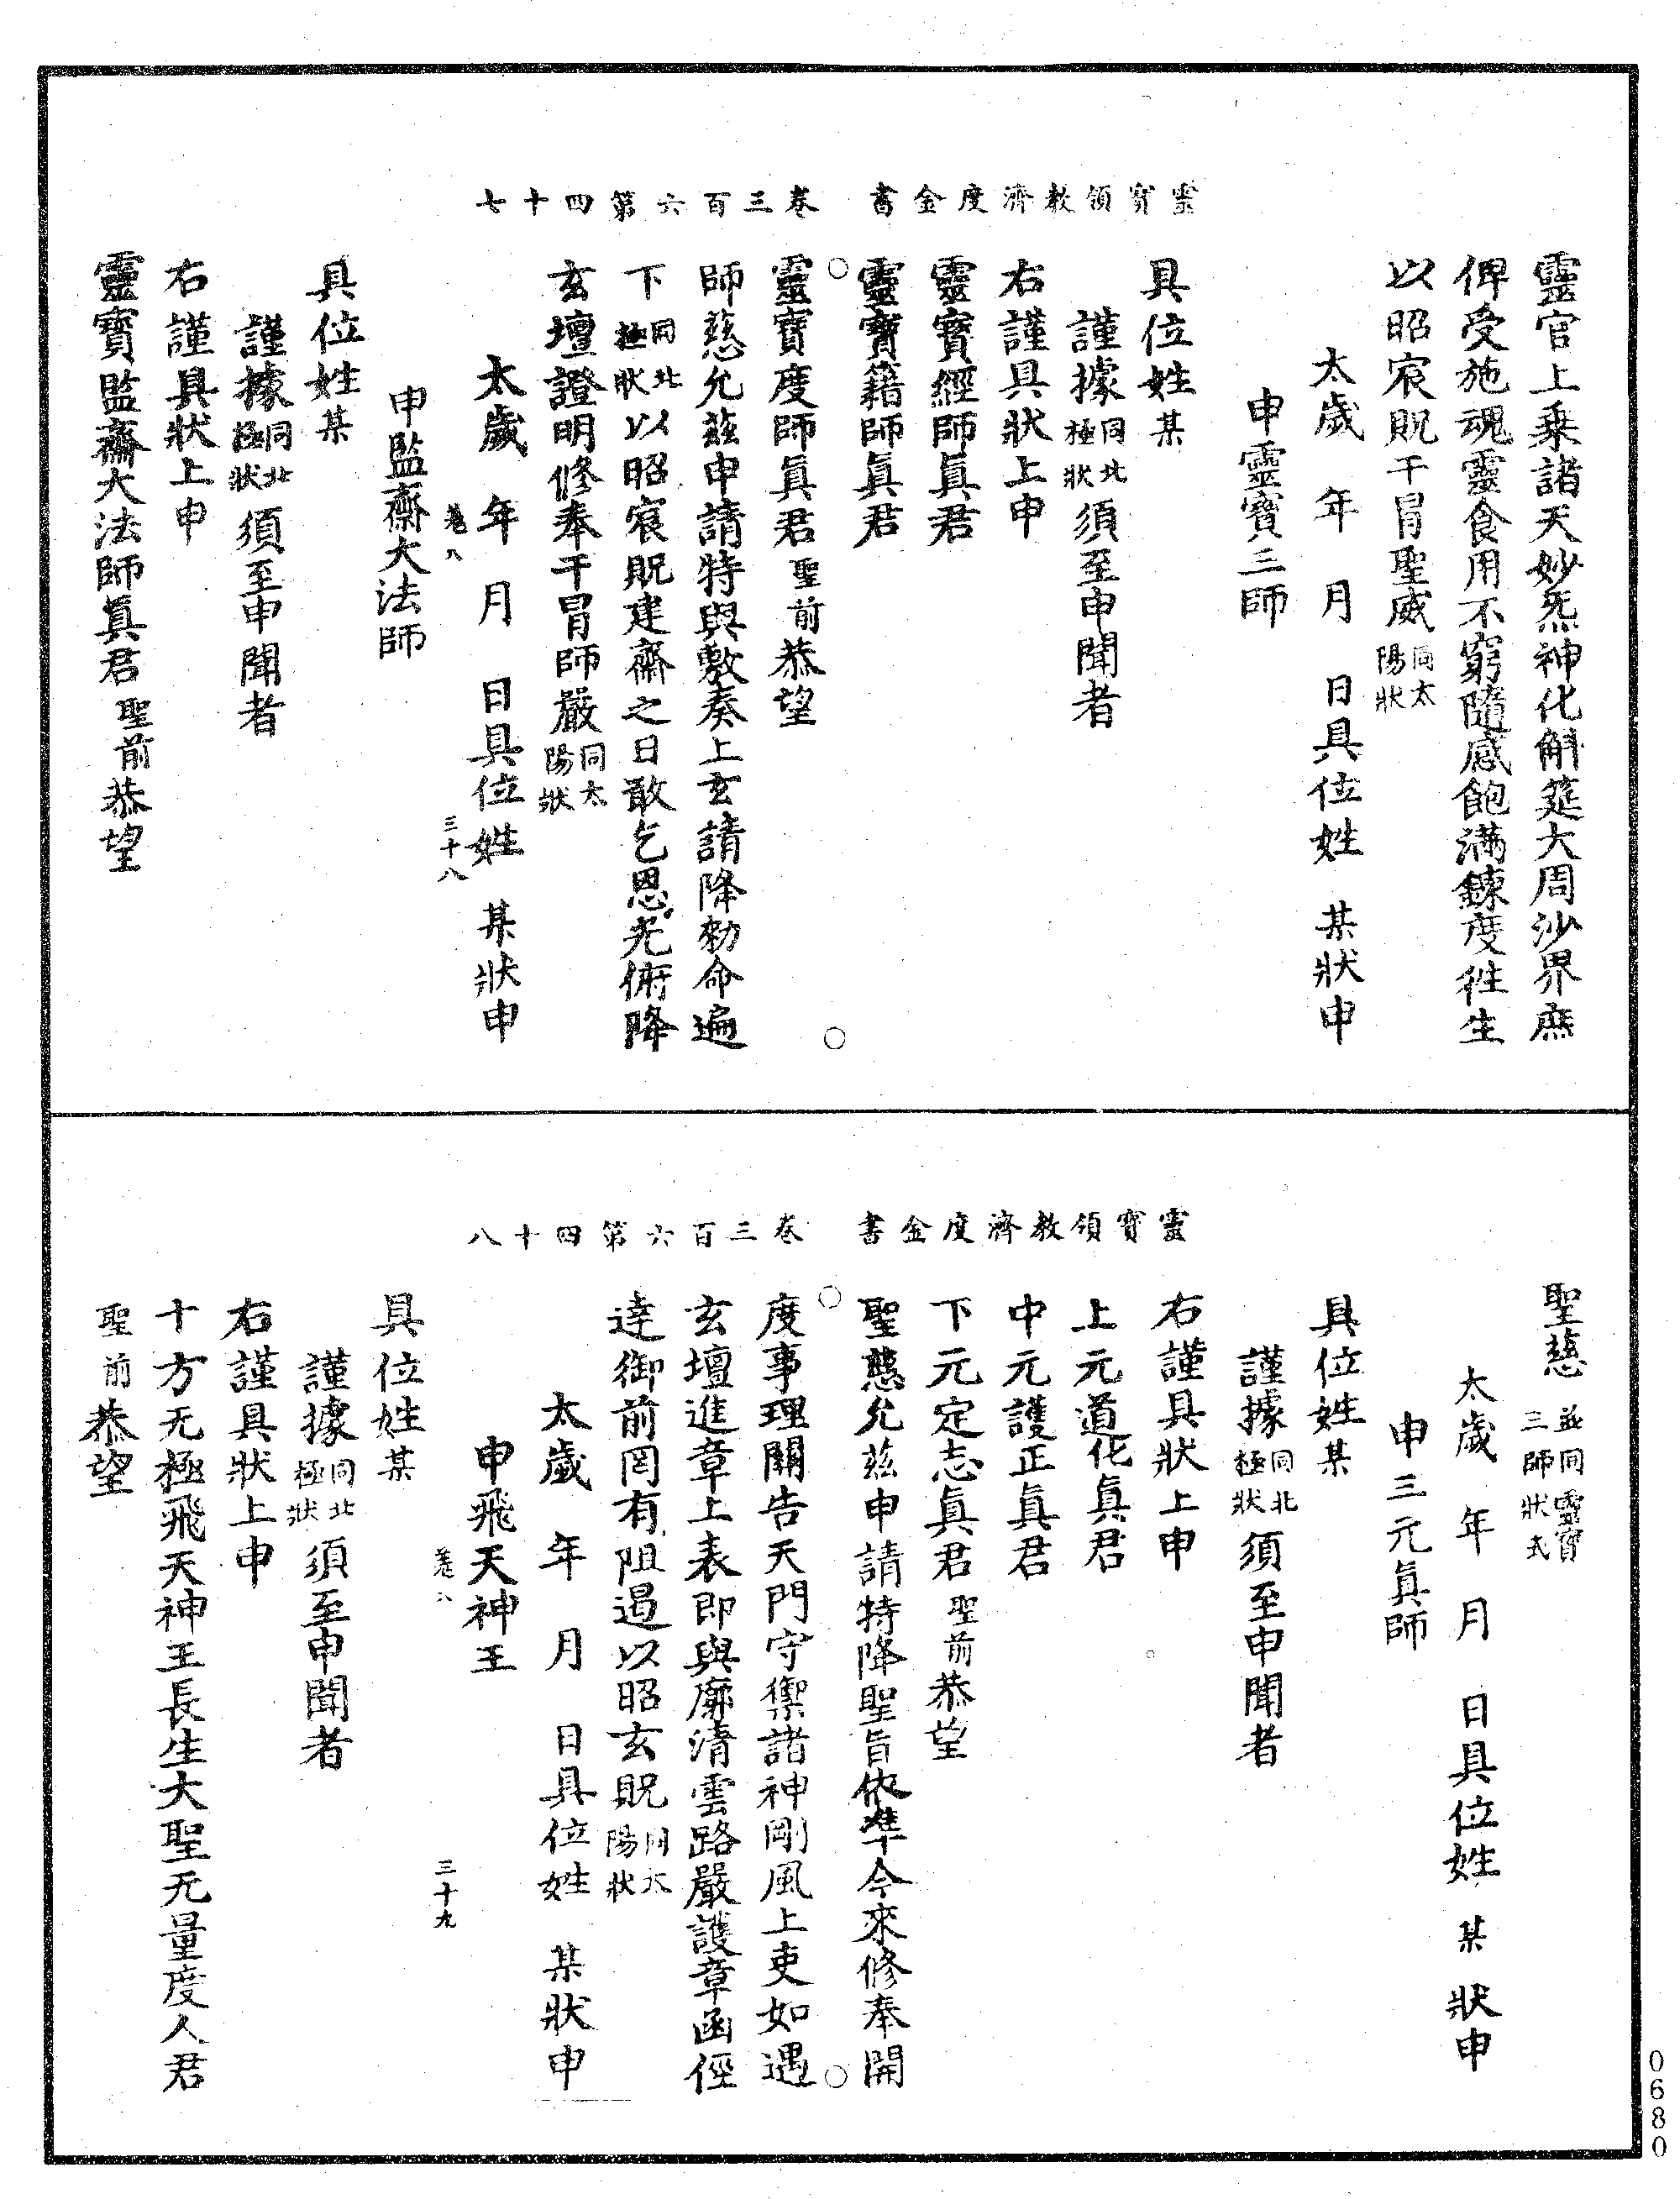 靈寶領教濟度金書　卷三百六　第四十七
靈官上乘諸天妙炁神化斛筵大周沙界庶
俾受施魂靈食用不窮隨感飽滿鍊度徃生
以昭宸貺干冐聖威同太陽狀
太歲　年　月　日具位姓　某狀申
申靈寶三師
具位姓某
謹據同北極狀須至申聞者
右謹具狀上申
靈寶經師眞君
靈寶籍師眞君
靈寶度師眞君聖前恭望
師慈允茲申請特與敷奏上玄請降勑命遍
下同北極狀以昭宸貺建齋之日敢乞恩光俯降
玄壇證明修奉干冐師嚴同太陽狀
太歲　年　月　日具位姓　某狀申
卷八　三十八
申監齋大法師
具位姓某
謹據同北極狀須至申聞者
右謹具狀上申
靈寶監齋大法師眞君聖前恭望
靈寶領教濟度金書　卷三百六　第四十八
聖慈並同靈寶三師狀式
太歲　年　月　日具位姓　某　狀申
申三元眞師
具位姓某
謹據同北極狀須至申聞者
右謹具狀上申
上元道化眞君
中元護正眞君
下元定志眞君聖前恭望
聖慈允茲申請特降聖旨依準今來修奉開
度事理關告天門守禦諸神剛風上吏如遇
玄壇進章上表即與廓清雲路嚴護章函徑
達御前罔有阻遏以昭玄貺同太陽狀
太歲　年　月　日具位姓　某狀申
卷八　三十九
申飛天神王
具位姓某
謹據同北極狀須至申聞者
右謹具狀上申
十方无極飛天神王長生大聖无量度人君
聖前恭望
0680